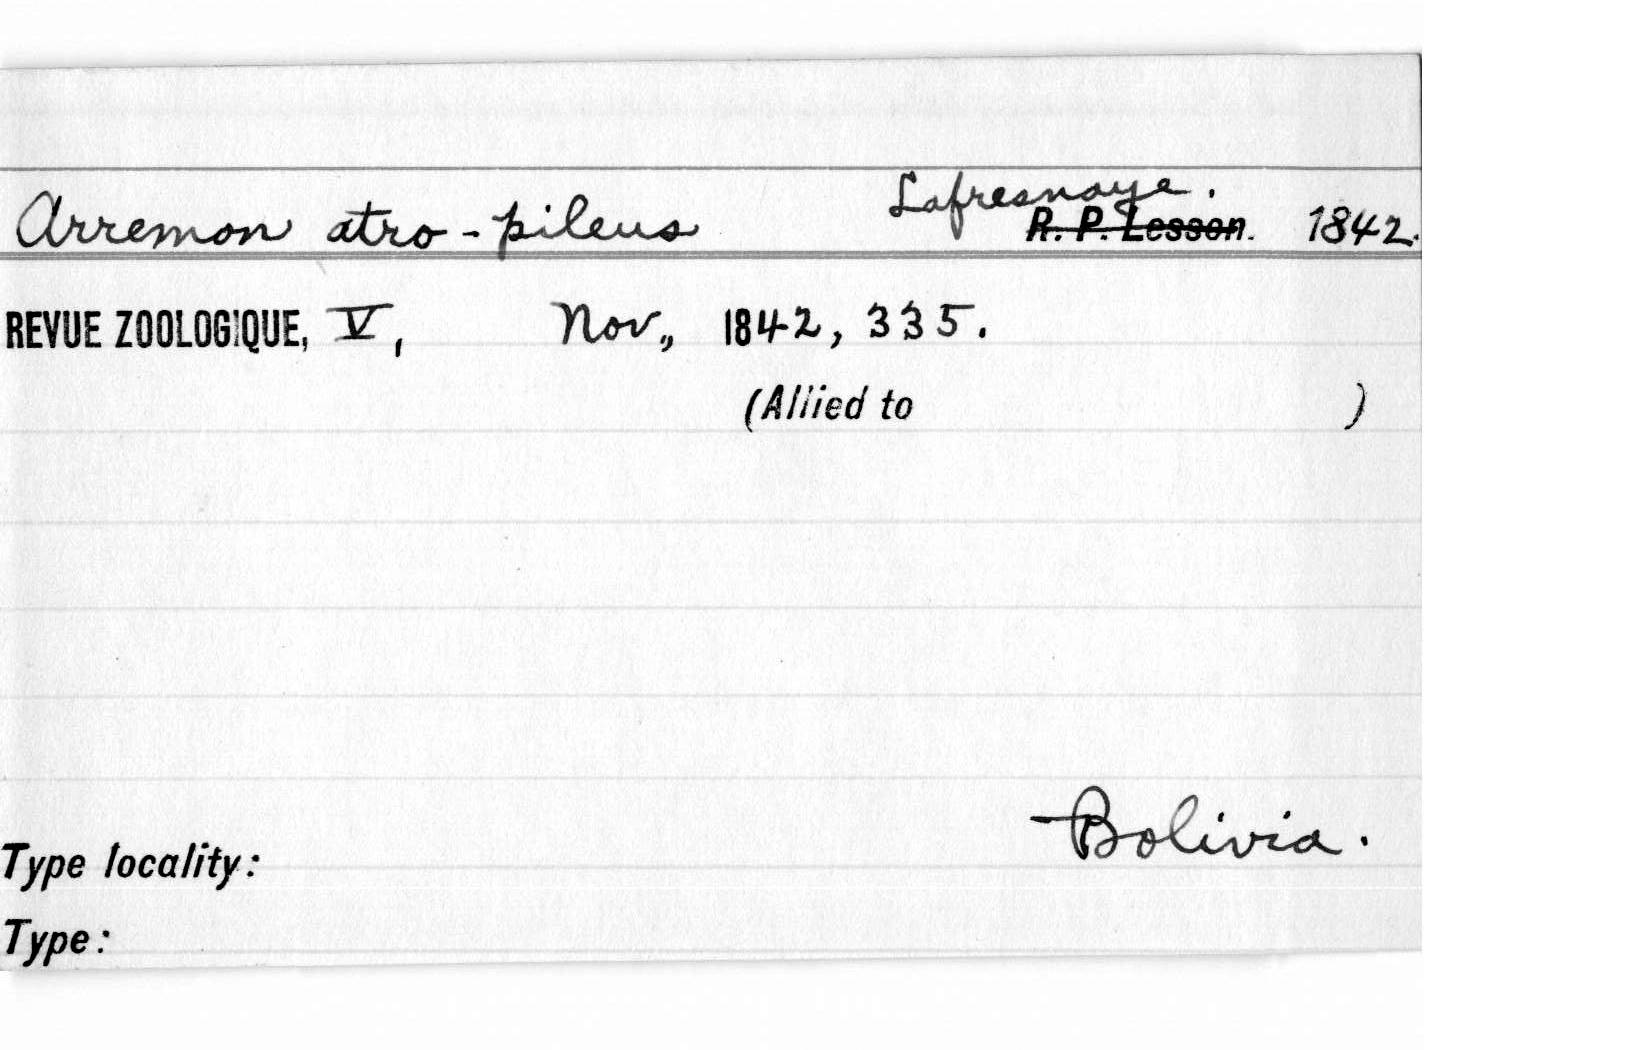 Lafresnaye.
Arremon atro-pileus R. P. Lesson. 1842.
REVUE ZOOLOGIQUE, V, Nov., 1842, 335.
(Allied to )
Bolivia.
Type locality:
Type: